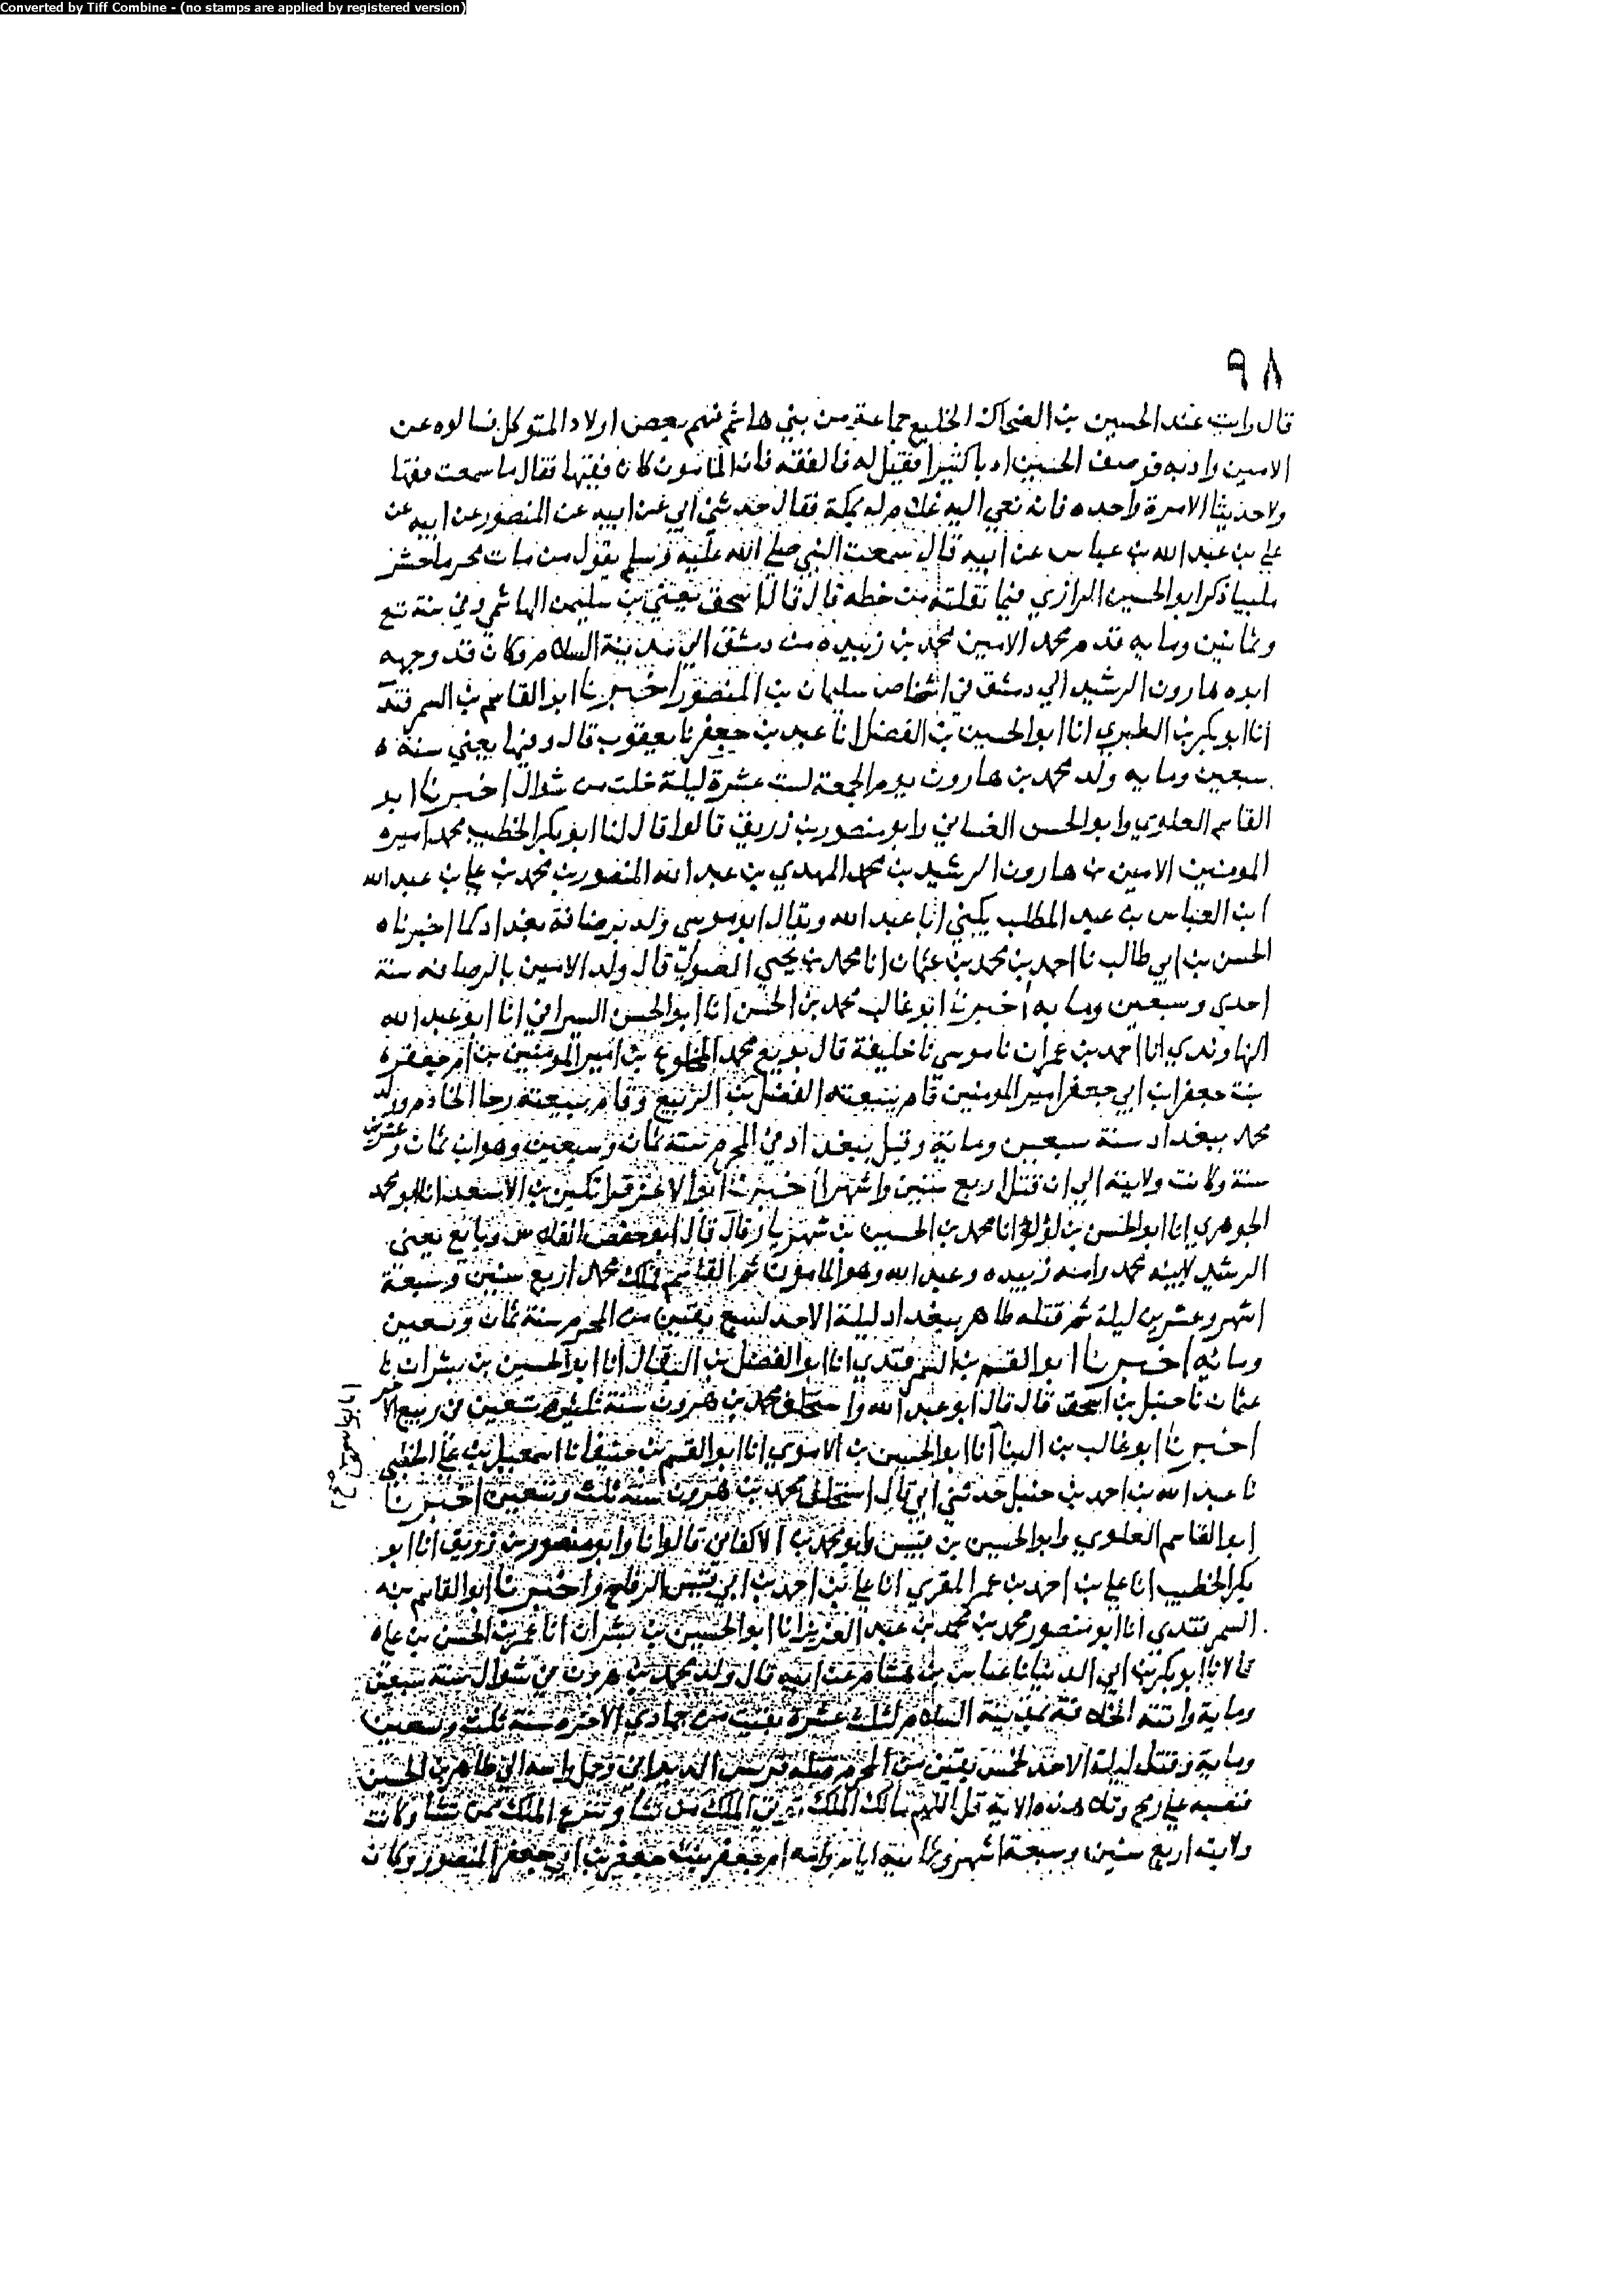 Converted by Tiff Combine - (no stamps are applied by registered version)
٩٨
قال رايت عند الحسين بن الضحاك الخليع جماعة من بني هاشم فيهم بعض اولاد المتوكل فسالوه عن
الامين وادبه فوصف الحسين ادبا كثيرا فقيل له فالفقه فان المامون كان فقيها فقال ما سمعت فقها
ولا حديثا الا مرة واحده فانه نعي اليه غلام له بمكة فقال حدثني ابي عن ابيه عن المنصور عن ابيه عن
علي بن عبد الله بن عباس عن ابيه قال سمعت النبي صلي الله عليه وسلم يقول من مات محرما حشر
ملبيا ذكر ابو الحسين الرازي فيما نقلته من خطه قال قال اسحق يعني بن سليمن الهاشمي وفي سنة تسع
وثمانين ومايه قدم محمد الامين محمد بن زبيده من دمشق الي مدينة السلام وكان قد وجهه
ابوه هارون الرشيد الي دمشق في اشخاص سليمان بن المنصور اخبرنا ابو القاسم بن السمرقند
انا ابو بكر بن الطبري انا ابو الحسين بن الفضل انا عبد بن جعفر نا يعقوب قال وفيها يعني سنة ه
سبعين ومايه ولد محمد بن هارون يوم الجمعة لست عشرة ليلة خلت من شوال اخبرنا ابو
القاسم العلوي وابو الحسن الغساني وابو منصور بن زريق قالوا قال لنا ابو بكر الخطيب محمد امير ه
المومنين الامين بن هارون الرشيد بن محمد المهدي بن عبد الله المنصور بن محمد بن علي بن عبد الله
ابن العباس بن عبد المطلب يكني ابا عبد الله ويقال ابو موسي ولد برصافة بغداد كما اخبرناه
الحسن بن ابي طالب نا احمد بن محمد بن عثمان انا محمد بن يحيي الصولي قال ولد الامين بالرصافه سنة
احدي وسبعين ومايه اخبرنا ابو غالب محمد بن الحسن انا ابو الحسن السيرافي انا ابو عبد الله
النهاوندي انا احمد بن عمران نا موسي نا خليفة قال بويع محمد المخلوع بن امير المومنين بن ام جعفر ه
بنة جعفر ابن ابي جعفر امير المومنين قام ببيعته الفضل بن الربيع وقام ببيعته رجا الخادم وولد
محمد ببغداد سنة سبعين وماية وقتل ببغداد في المحرم سنة ثمان وسبعين وهو ابن ثمان وعشرين
سنة وكانت ولايته الي ان قتل اربع سنين واشهرا اخبرنا ابو الاعز قراتكين بن الاسعد انا ابو محمد
الجوهري انا ابو الحسن بن لؤلؤ انا محمد بن الحسين بن شهريار قال قال ابو حفص الفلاس وبايع يعني
الرشيد لابنيه محمد وامه زبيده وعبد الله وهو المامون ثم القاسم فملك محمد اربع سنين وسبعة
اشهر وعشرين ليلة ثم قتله طاهر ببغداد ليلة الاحد لسبع بقين من المحرم سنة ثمان وتسعين
ومائه اخبرنا ابو القسم بن السمرقندي انا ابو الفضل بن البقال انا ابو الحسين بن بشران نا
عثمان نا حنبل بن اسحق قال قال ابو عبد الله واستخلف محمد بن هرون سنة ثلاث وتسعين في ربيع الاخر
اخبرنا ابو غالب بن البنا انا ابو الحسين بن الابنوسي انا ابو القسم بن عتيق انا اسمعيل بن علي الخطبي
نا عبد الله بن احمد بن حنبل حدثني ابي قال استخلف محمد بن هرون سنة ثلث وتسعين اخبرنا
ابو القاسم العلوي وابو الحسين بن قبيس وابو محمد بن الاكفاني قالوا نا وابو منصور بن زريق انا ابو
بكر الخطيب انا علي بن احمد بن عمر المقري انا علي بن احمد بن ابي قيس الرفا ح واخبرنا ابو القاسم بن
السمرقندي انا ابو منصور محمد بن محمد بن عبد العزيز انا ابو الحسين بن بشران انا عمر بن الحسن بن علي ه
قالا نا ابو بكر بن ابي الدنيا نا عباس بن هشام عن ابيه قال ولد محمد بن هرون في شوال سنة سبعين
وماية واتته الخلافة بمدينة السلام لثلث عشرة بقيت من جمادي الاخره سنة ثلث وتسعين
وماية وقتل ليلة الاحد لخمس بقين من المحرم قتله قريش الدنداني وحمل راسه الي طاهر بن الحسين
فنصبه علي رمح وتلا هذه الاية قل اللهم مالك الملك توتي الملك من تشا وتنزع الملك ممن تشا وكانت
ولايته اربع سنين وسبعة اشهر وثمانية ايام وامه ام جعفر بنت جعفر بن ابي جعفر المنصور وكان